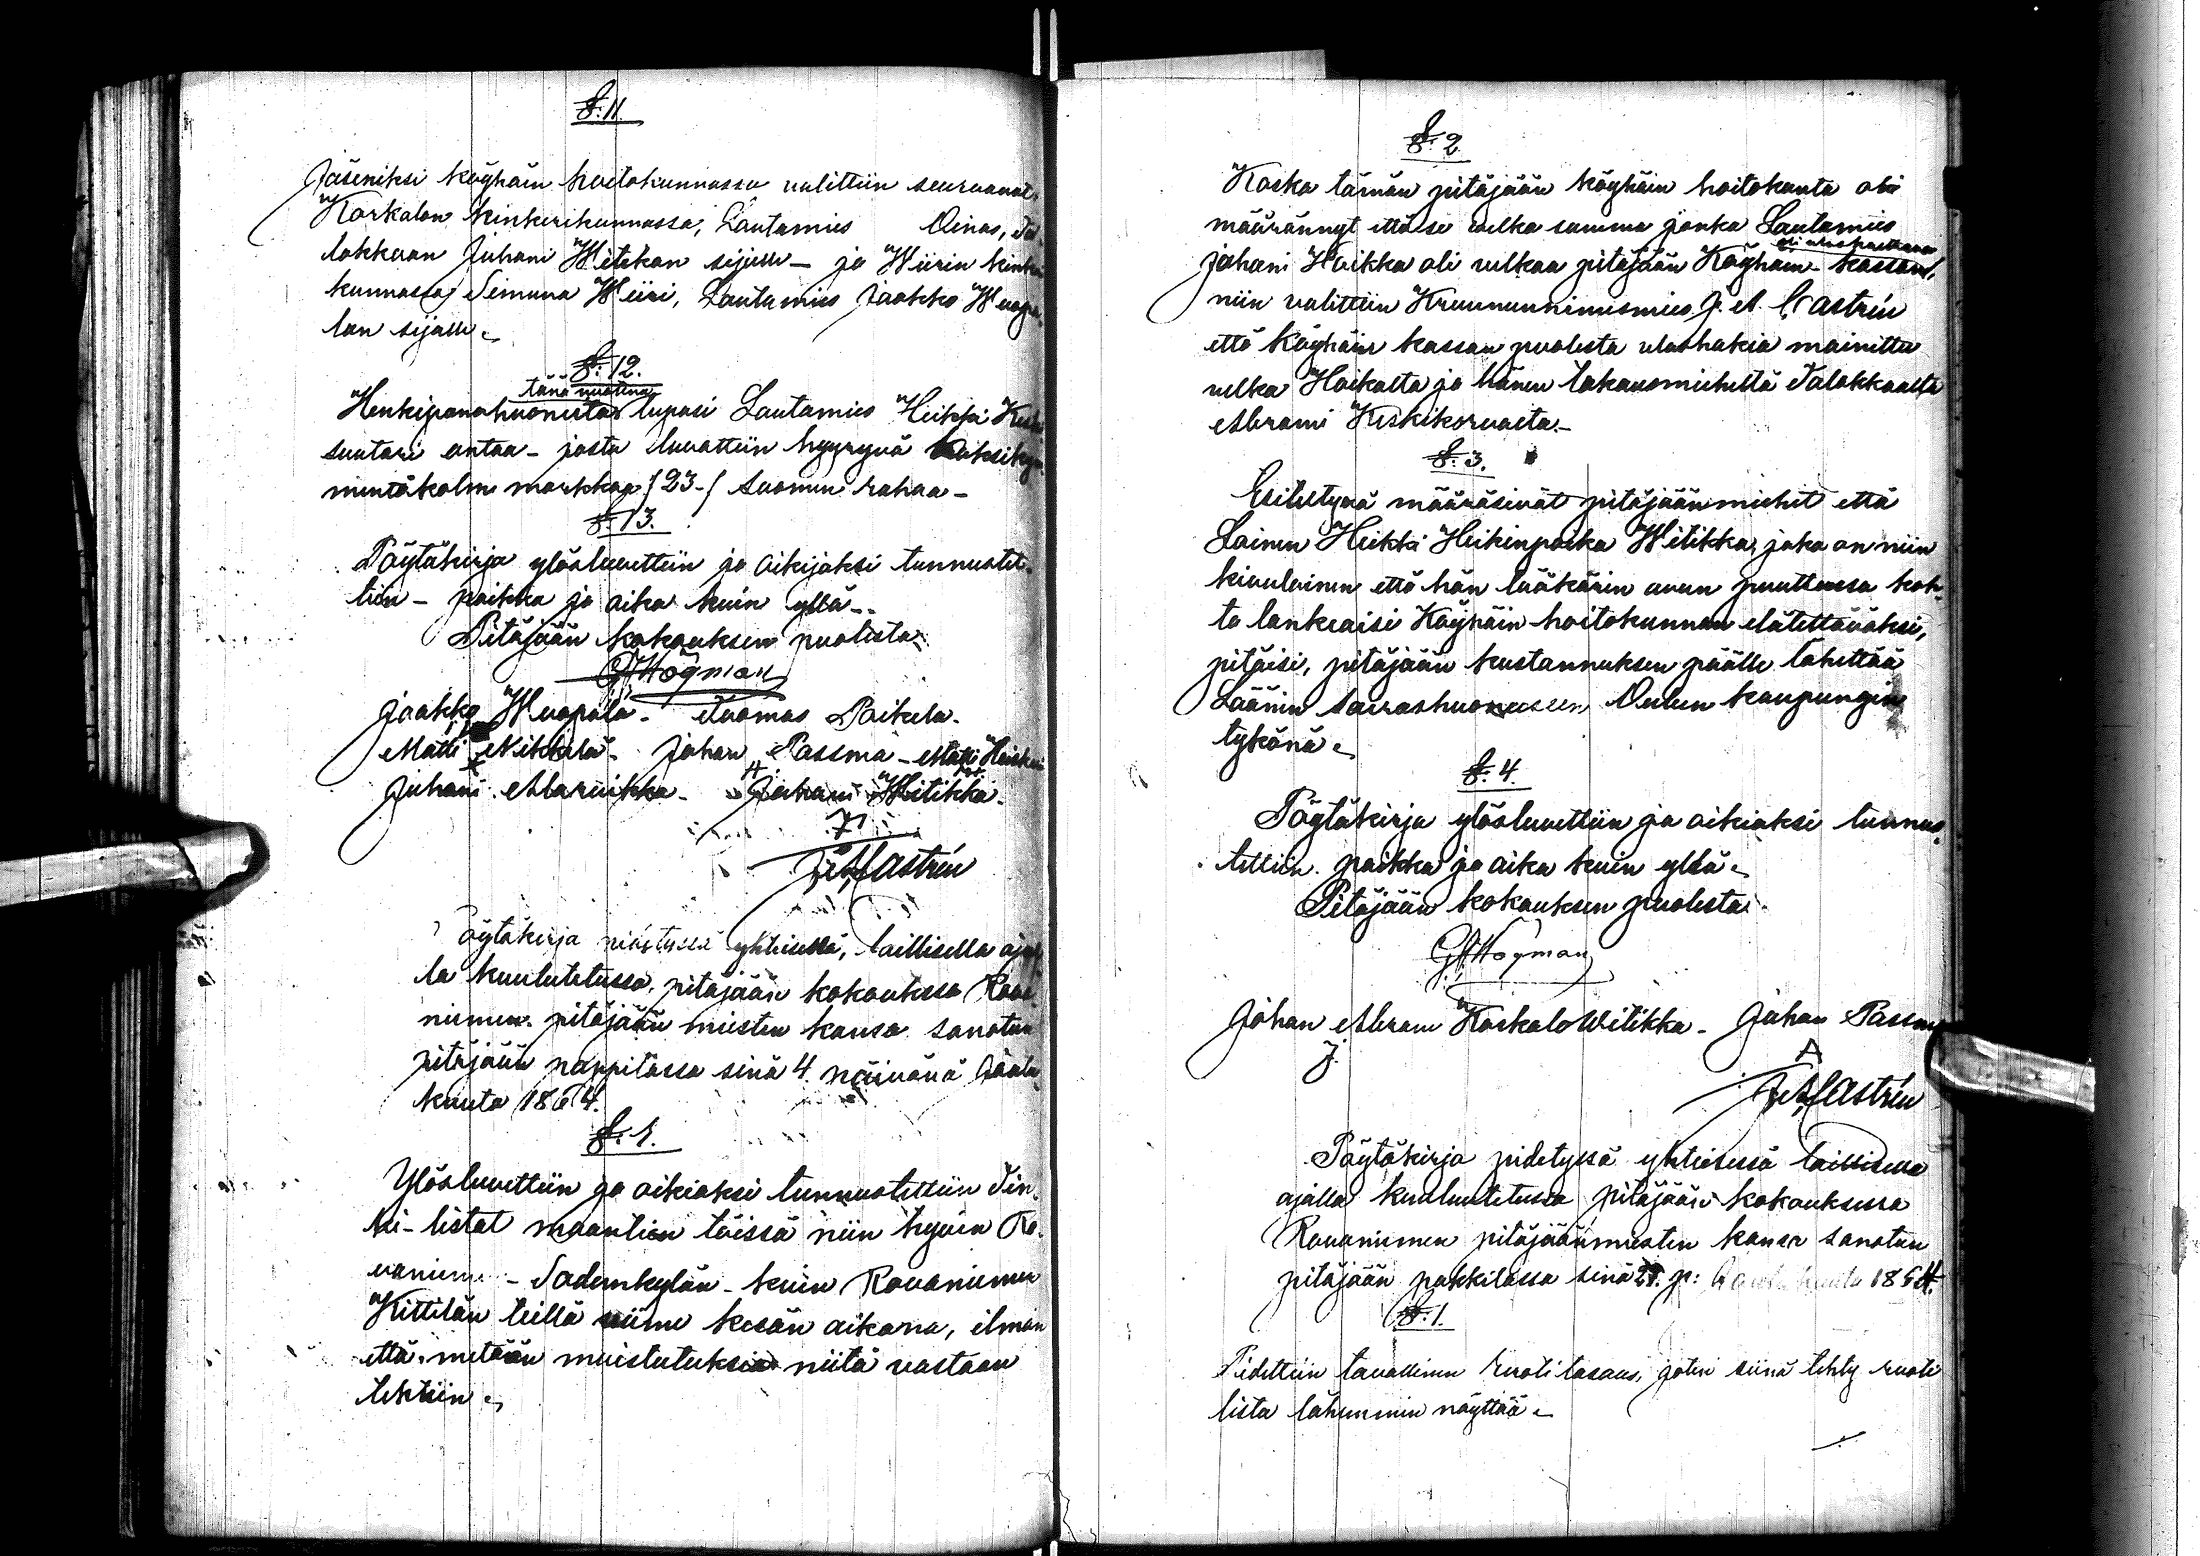 §. 11.
Jäseniksi köyhäin hoitokunnassa valittiin seuraavat.
Korkalon kinkerikunnassa, Lautamies Oinas, Ta-
lokkaan Juhani Witikan sijalle – ja Wiirin kinkeri
kunnassa Simuna Wiiri, Lautamies Jaakko Wuopa-
lan sijalle.
§. 12.
tänä vuotena
Henkipanohuonetta lupasi Lautamies Heikki
suutari antaa – josta luvattiin hyyryvä kaksikym
mentäkolm markkaa /23–/ Suomen rahaa –
§. 13.
Pöytäkirja ylösluvettiin ja oikijaksi tunnustet-
tiin – paikka ja aika kuin yllä –.
Pitäjään kokouksen puolesta:
GHögman
Jaakko Wuopala. Tuomas Paikela.
Matti Nikkilä. Johan Passma – Matti
Juhani Alaruikka. Johani Witikka.
J. A. Castrén
Pöytäkirja pidetyssä yhtisessä, laillisella ajal-
la kuulutetussa, pitäjään kokouksessa Rova-
niemen pitäjään miesten kansa sanotun
pitäjään pappilassa sinä 4. päivänä
kuuta 1864.
§. 1.
Ylösluvettiin ja oikiaksi tunnustettiin Tin-
ki-listat maantien töissä niin hyvin Ro-
vaniemen – Sodankylän – kuin Rovaniemen
Kittilän teillä viime kesän aikana, ilman
että mitään muistutuksia niitä vastaan
tehtiin.
§. 2.
Koska tämän pitäjään köyhäin hoitokunta oli
määrännyt että se velka summa jonka Lautamies
Johani Haikka oli velkaa pitäjään Köyhäin-kassaan,
niin valittiin Kruununnimismies J. A. Castrén
että köyhäin kassan puolesta uloshakia mainittu
velka Haikalta ja hänen takausmieheltä Talokkaalta
Abrami Keskikorvalta. –
§. 3.
Esitettynä määräsivät pitäjäänmiehet että
Loinen Heikki Heikinpoika Witikka, joka on niin
kivuloinen että hän lääkärin avun puuttuessa koh-
ta lankeaisi Köyhäin hoitokunnan elätettäväksi,
pitäisi, pitäjään kustannuksen päälle lähettää
Läänin sairashuoneeseen Oulun kaupungin
tykönä.
§. 4.
Pöytäkirja ylösluvettiin ja oikiaksi tunnus-
tettiin. paikka ja aika kuin yllä.
Pitäjään kokouksen puolesta.
GHögman
Johan Abram Korkalo Witikka. Juhan Passma
J. A. Castrén
Pöytäkirja pidetyssä yhtisessä laillisella
ajalla kuulutetussa pitäjään kokouksessa
Rovaniemen pitäjäänmiesten kansa sanotun
pitäjään pappilassa sinä 27. p: 1864.
§. 1.
Pidettiin tavallinen ruotitasaus, joten siinä tehty ruoti
lista lähemmin näyttää.